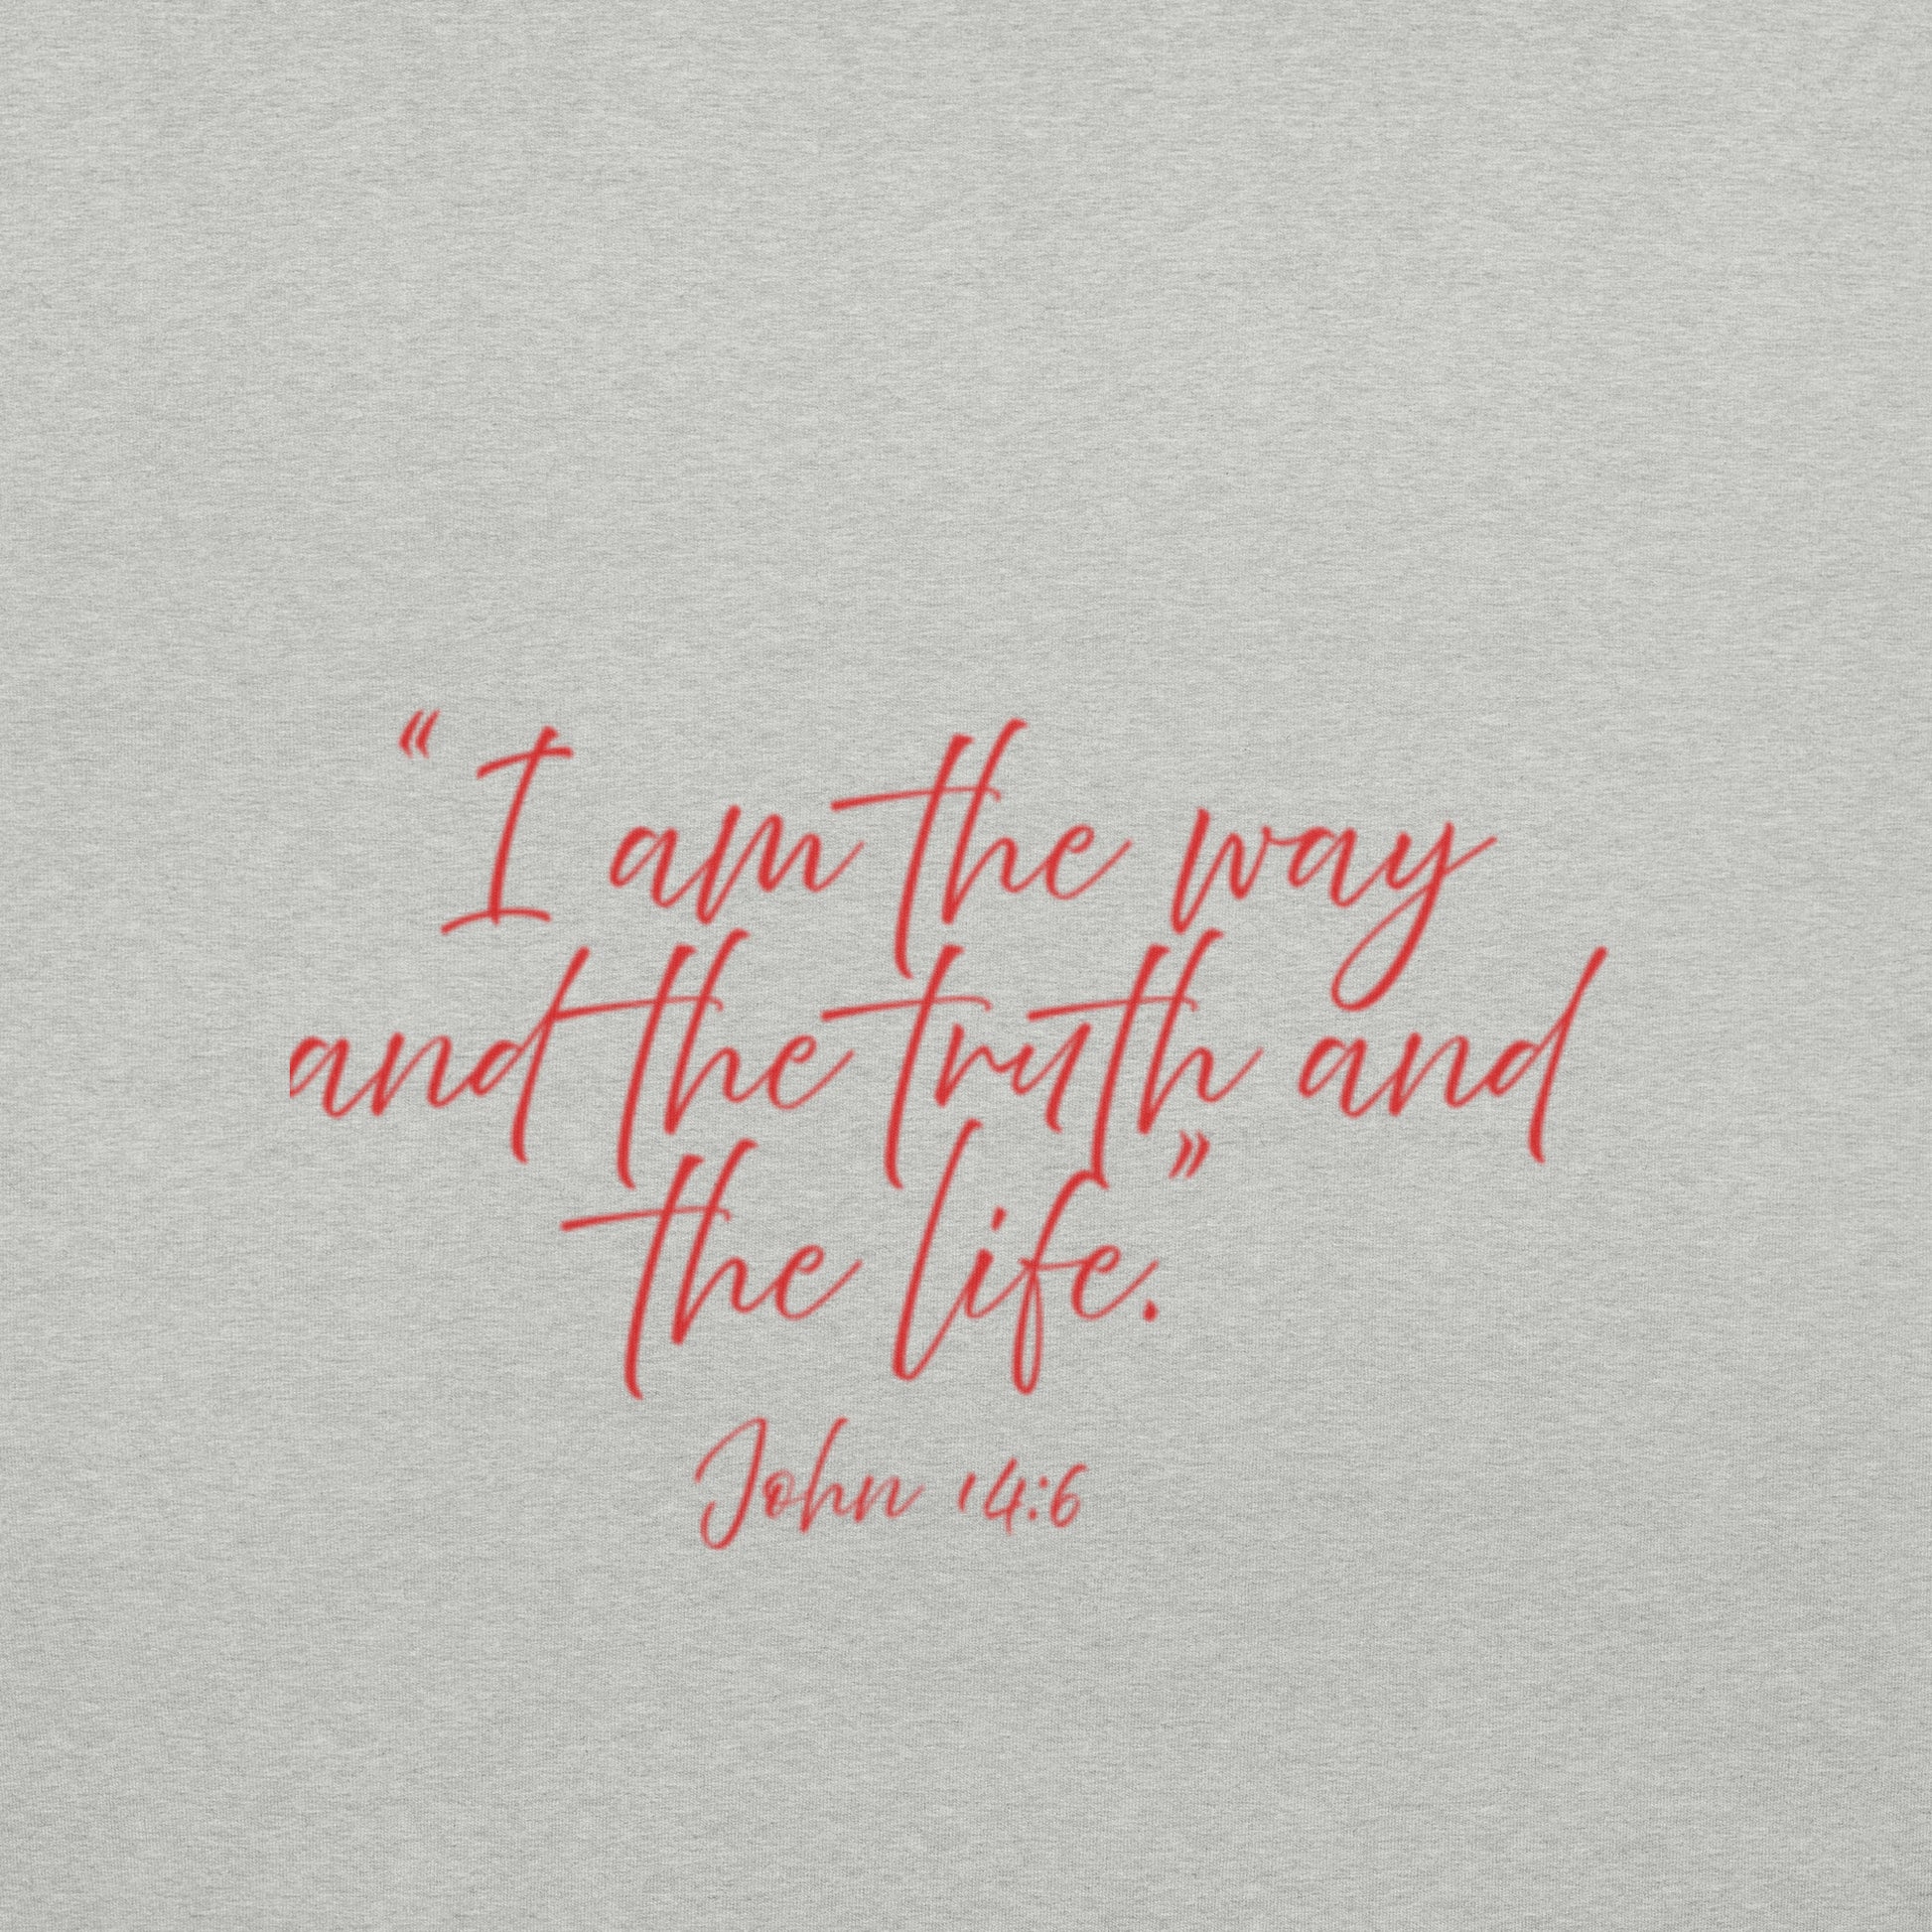 “I am the way
and the truth and
the life.”
John 14:6